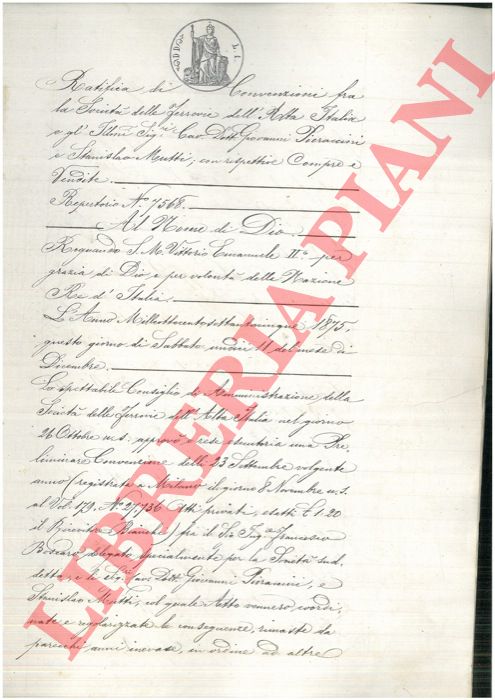 Ratifica di Convenzioni fra
la Società delle Ferrovie dell'Alta Italia
e gl' Illmi Sigri Cav. Dott. Giovanni Pieraccini
e Stanislao Mutti, con respettive Compre e
Vendite.
Repertorio No. 7568.
Al Nome di Dio.
Regnando S. M. Vittorio Emanuele IIo. per
grazia di Dio e per volontà della Nazione
Re d' Italia.
L'Anno Milleottocentosettantacinque 1875.
questo giorno di Sabato undici 11 del mese di
Dicembre.
Lo spettabile Consiglio di Amministrazione della
Società delle Ferrovie dell' Alta Italia nel giorno
26 Ottobre u.s. approvò e rese esecutoria una Pre
liminare Convenzione delli 23 Settembre volgente
anno, registrata a Milano il giorno 8 Novembre u.s.
al Vol: 179. No. 27736 Atti privati, esatte £ 1.20
il Ricevitore Bianchi, fra il Sig. Ingre. Francesco
delegato specialmente per la Società sud.
detta, e li Sigri Cav. Dott. Giovanni Pieraccini, e
Stanislao Mutti, col quale Atto vennero coordi,
nate e regolarizzate le conseguenze, rimaste da
parecchi anni inevase, in ordine ad altre
LIBRERIA PIANI